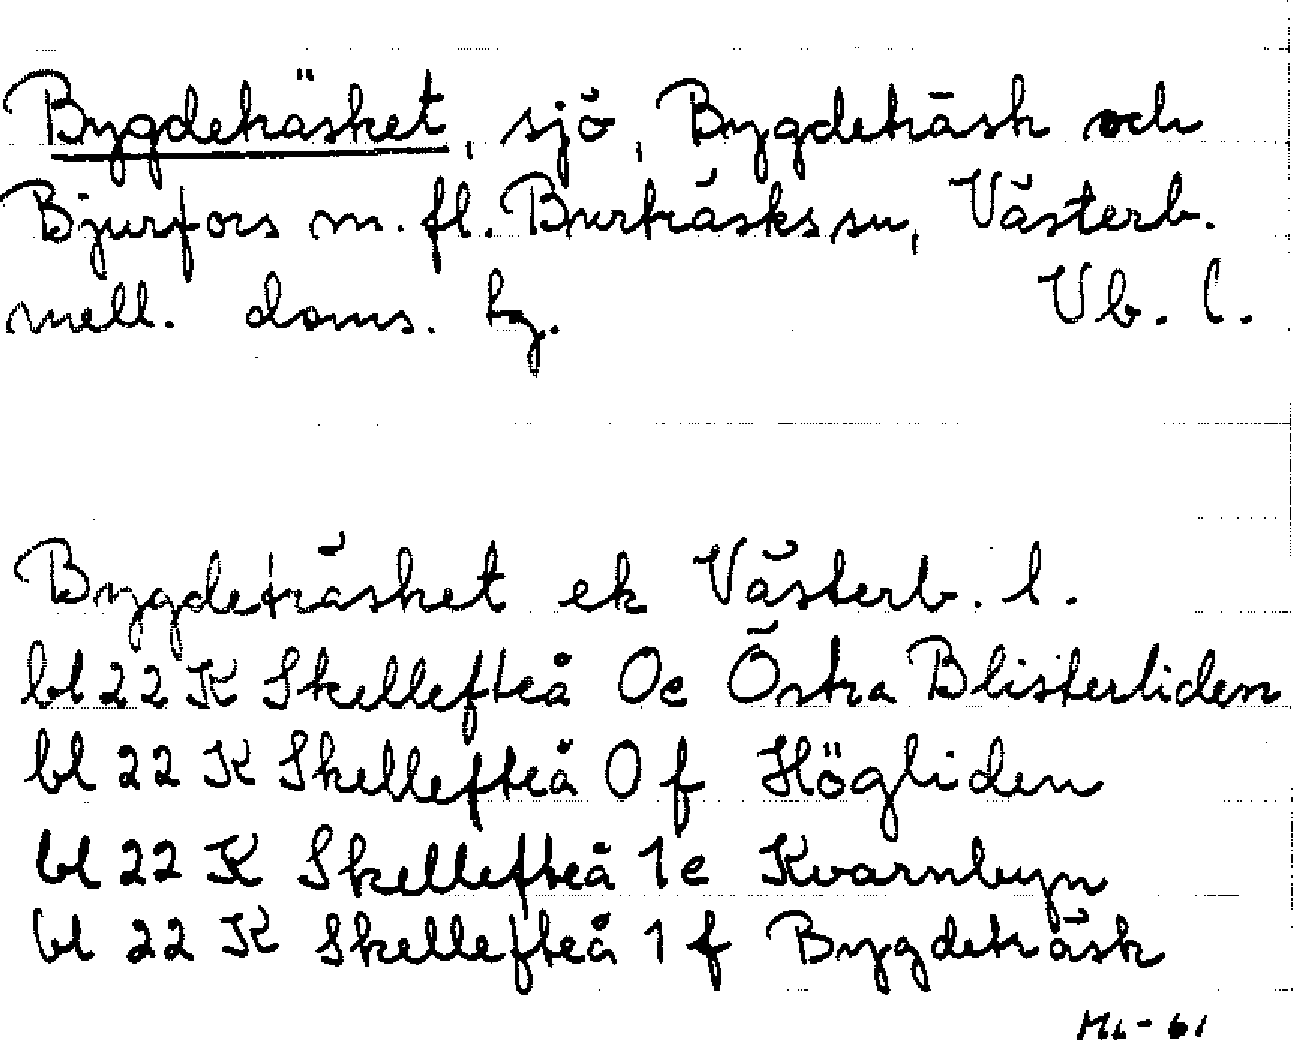 Bygdeträsket, sjö, Bygdeträsk och
Bjurfors m. fl. Burträsks sn, Västerb.
mell. doms. hg. Vb. l.
Bygdeträsket ek Västerb. l.
bl 22 K Skellefteå 0e Östra Blisterliden
bl 22 K Skellefteå 0f Högliden
bl 22 K Skellefteå 1e Kvarnbyn
bl 22 K Skellefteå 1f Bygdeträsk